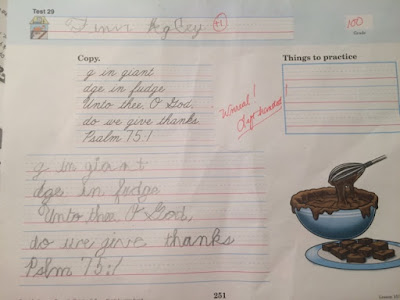 Test 29
+1
100
Grade
Copy.
Things to practice
g in giant
dge in fudge
Unto thee, O God,
do we give thanks.
Psalm 75:1
Unreal!
Left-handed
g in giant
dge in fudge
Unto thee O God,
do we give thanks
Pslm 75:1
251